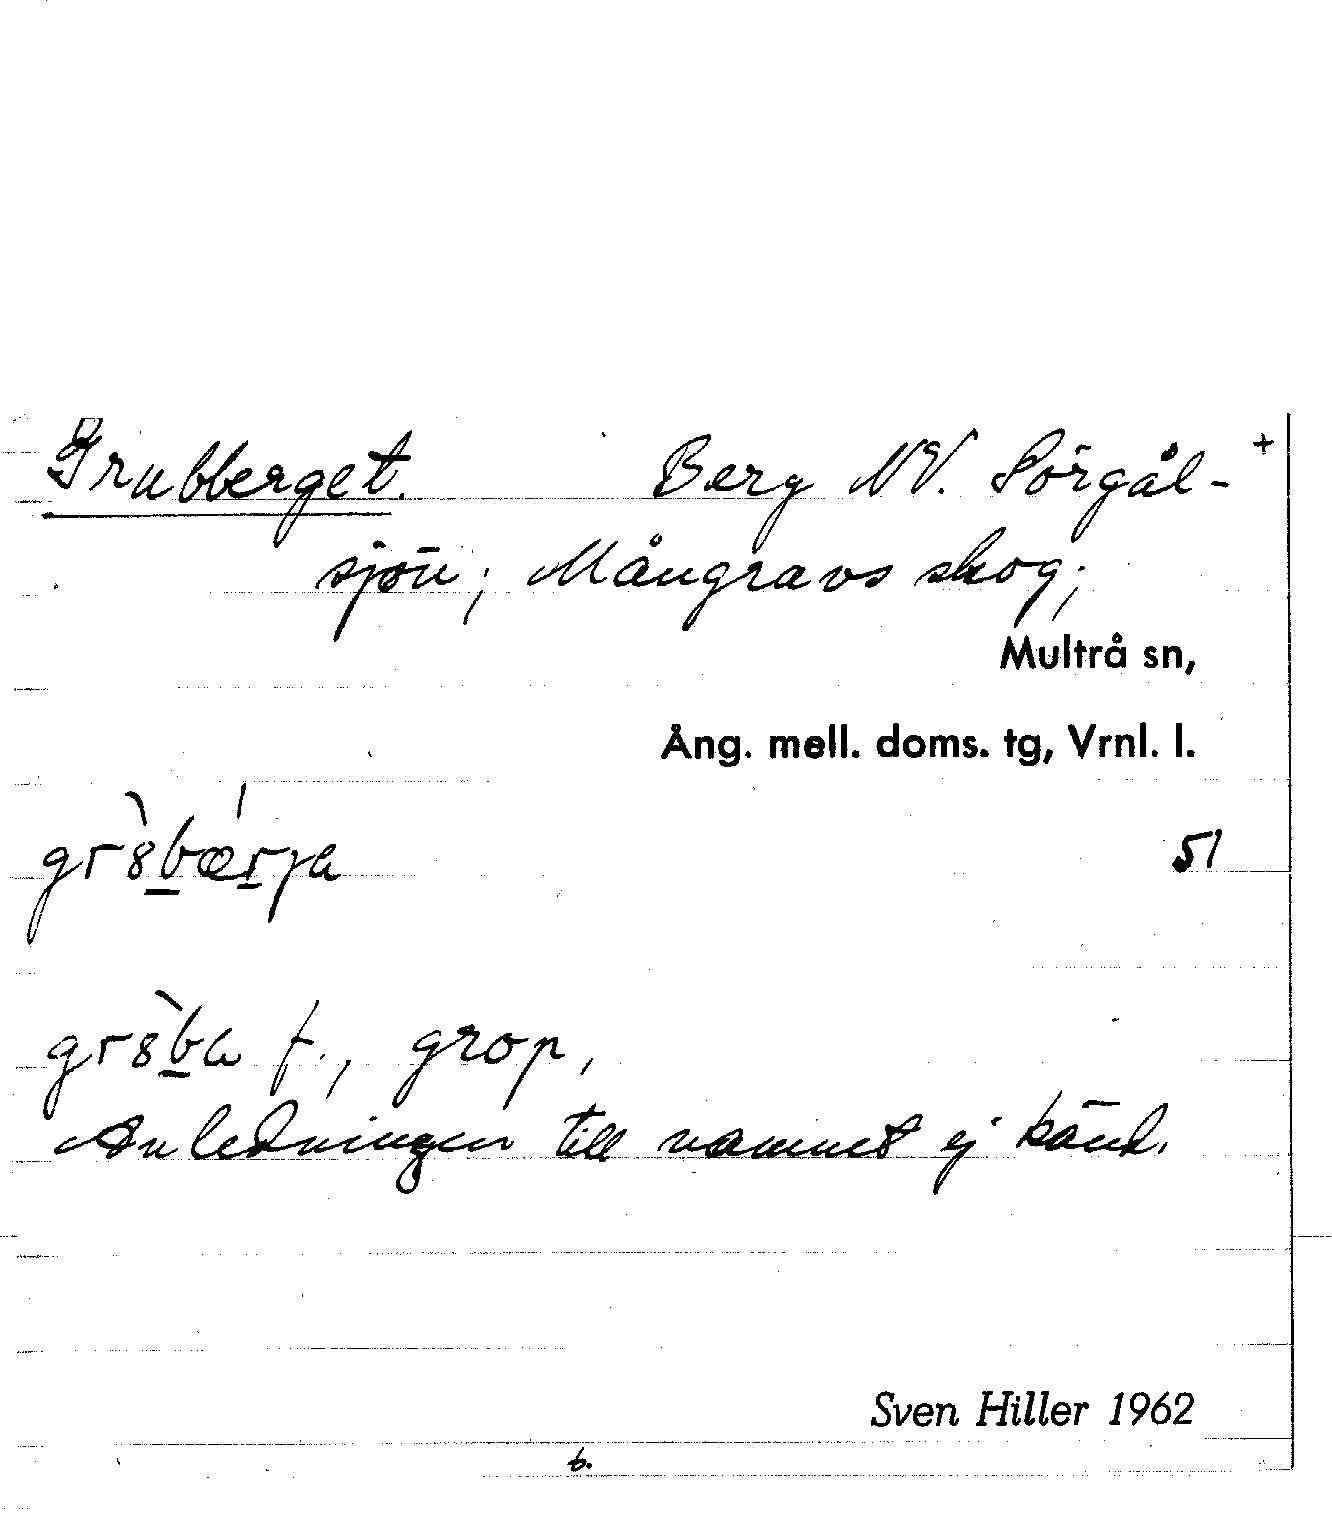 Grubberget. Berg NV. Sörgål- +
sjön; Mångravs skog;
Multrå sn,
Ång. mell. doms. tg, Vrnl. l.
gr8̀bǽrja
51
gr8̀ba f., grop,
Anledningen till namnet ej känd.
Sven Hiller 1962
b.